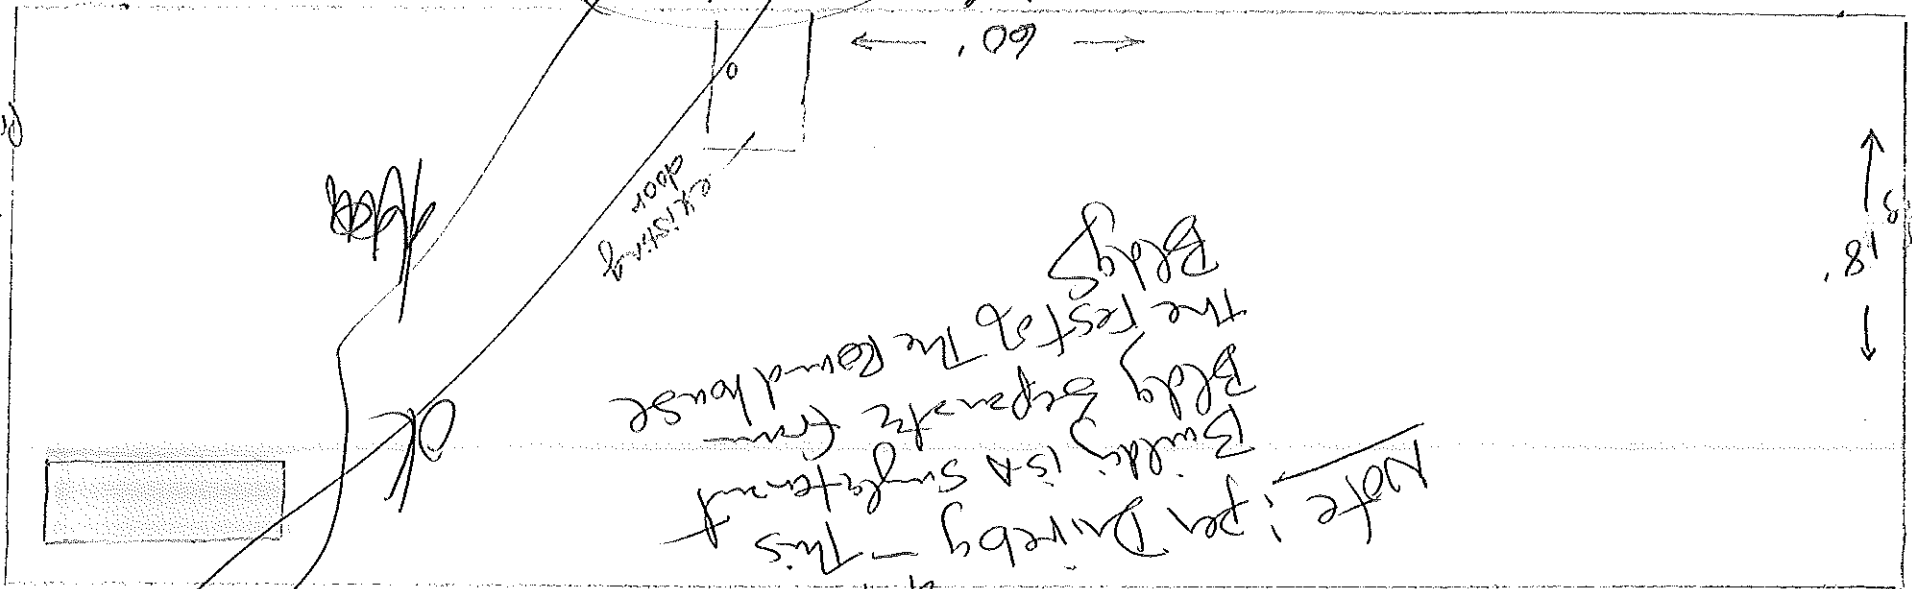 Note: per Driveby - This
Building is A Single tenant
Bldg Separate from
the rest of The Roundhouse
Bldgs
18'
existing
door
60'